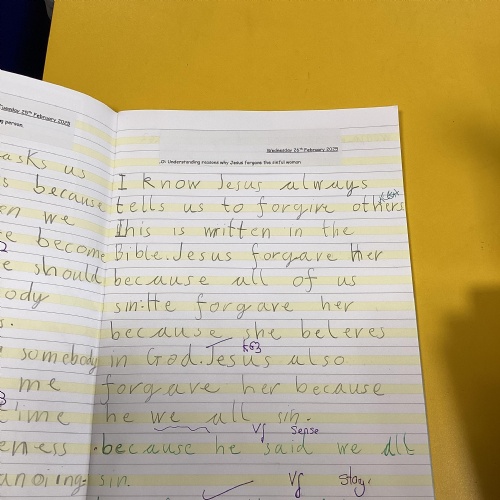 Tuesday 25th February 2025
person.
asks us
because
we
become
should
ody
somebody
me
eness
anoing.
Wednesday 26th February 2025
LO: Understanding reasons why Jesus forgave the sinful woman
I know Jesus always
tells us to forgive others
this is written in the
Bible. Jesus forgave her
because all of us
sin. He forgave her
because she beleves
in God. Jesus also
forgave her because
he we all sin.
VF Sense
because he said we all
sin.
VF Stay.